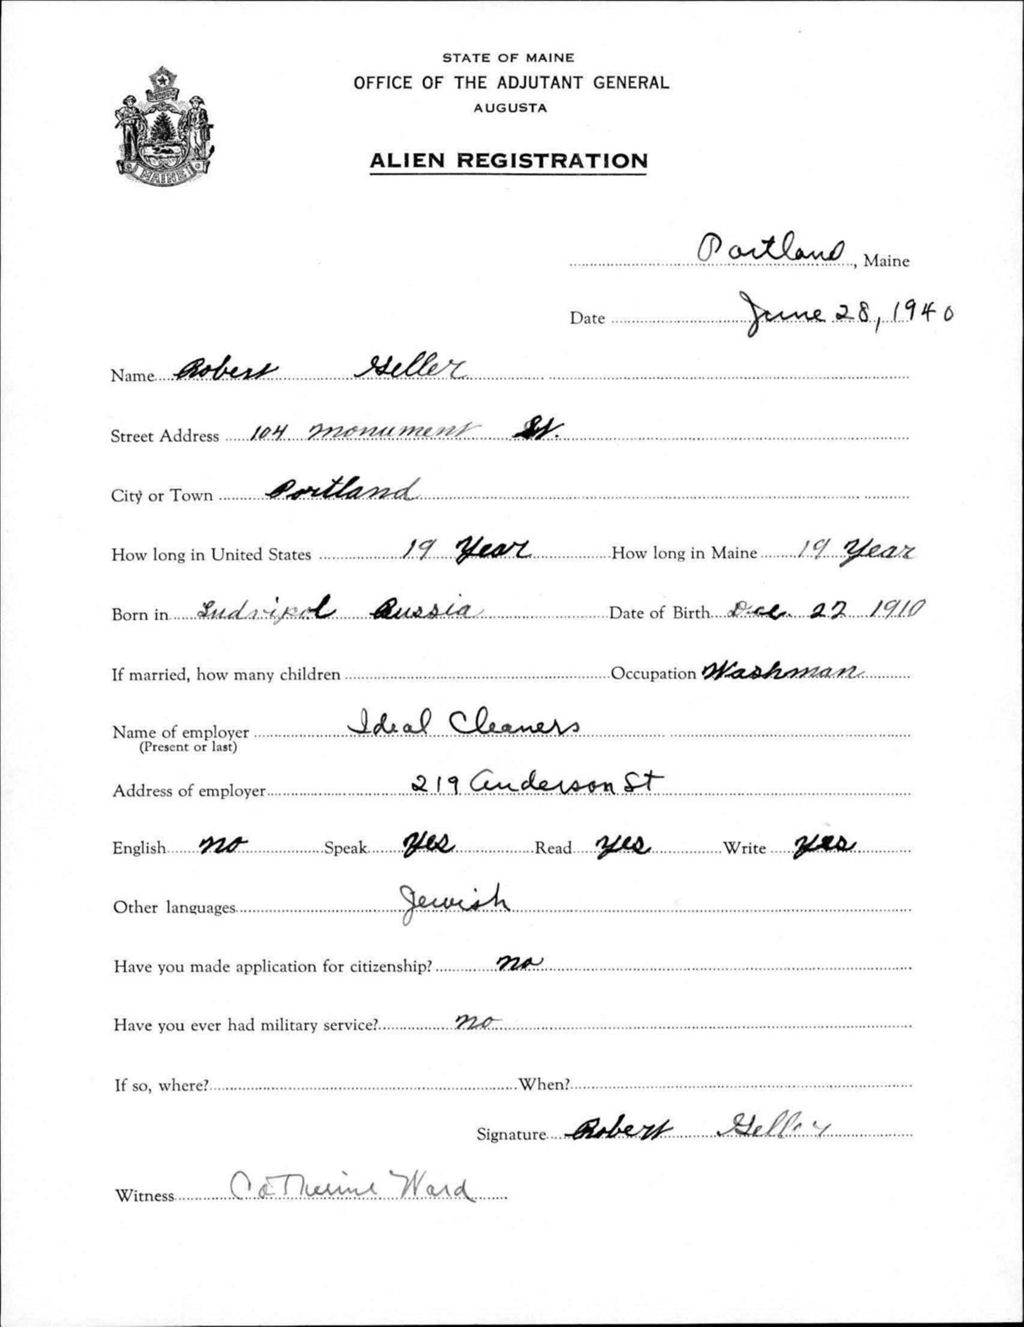 STATE OF MAINE
OFFICE OF THE ADJUTANT GENERAL
AUGUSTA
ALIEN REGISTRATION
MAINE
Portland, Maine
Date June 28, 1940
Name Robert Geller
Street Address 104 Monument St.
City or Town Portland
How long in United States 19 Year How long in Maine 19 Year
Born in Ludvipol Russia Date of Birth Dec. 27 1910
If married, how many children Occupation Washman
Name of employer Ideal Cleaners
(Present or last)
Address of employer 219 Anderson St
English no Speak yes Read yes Write yes
Other languages Jewish
Have you made application for citizenship? no
Have you ever had military service? no
If so, where? When?
Signature Robert Geller
Witness Catherine Ward